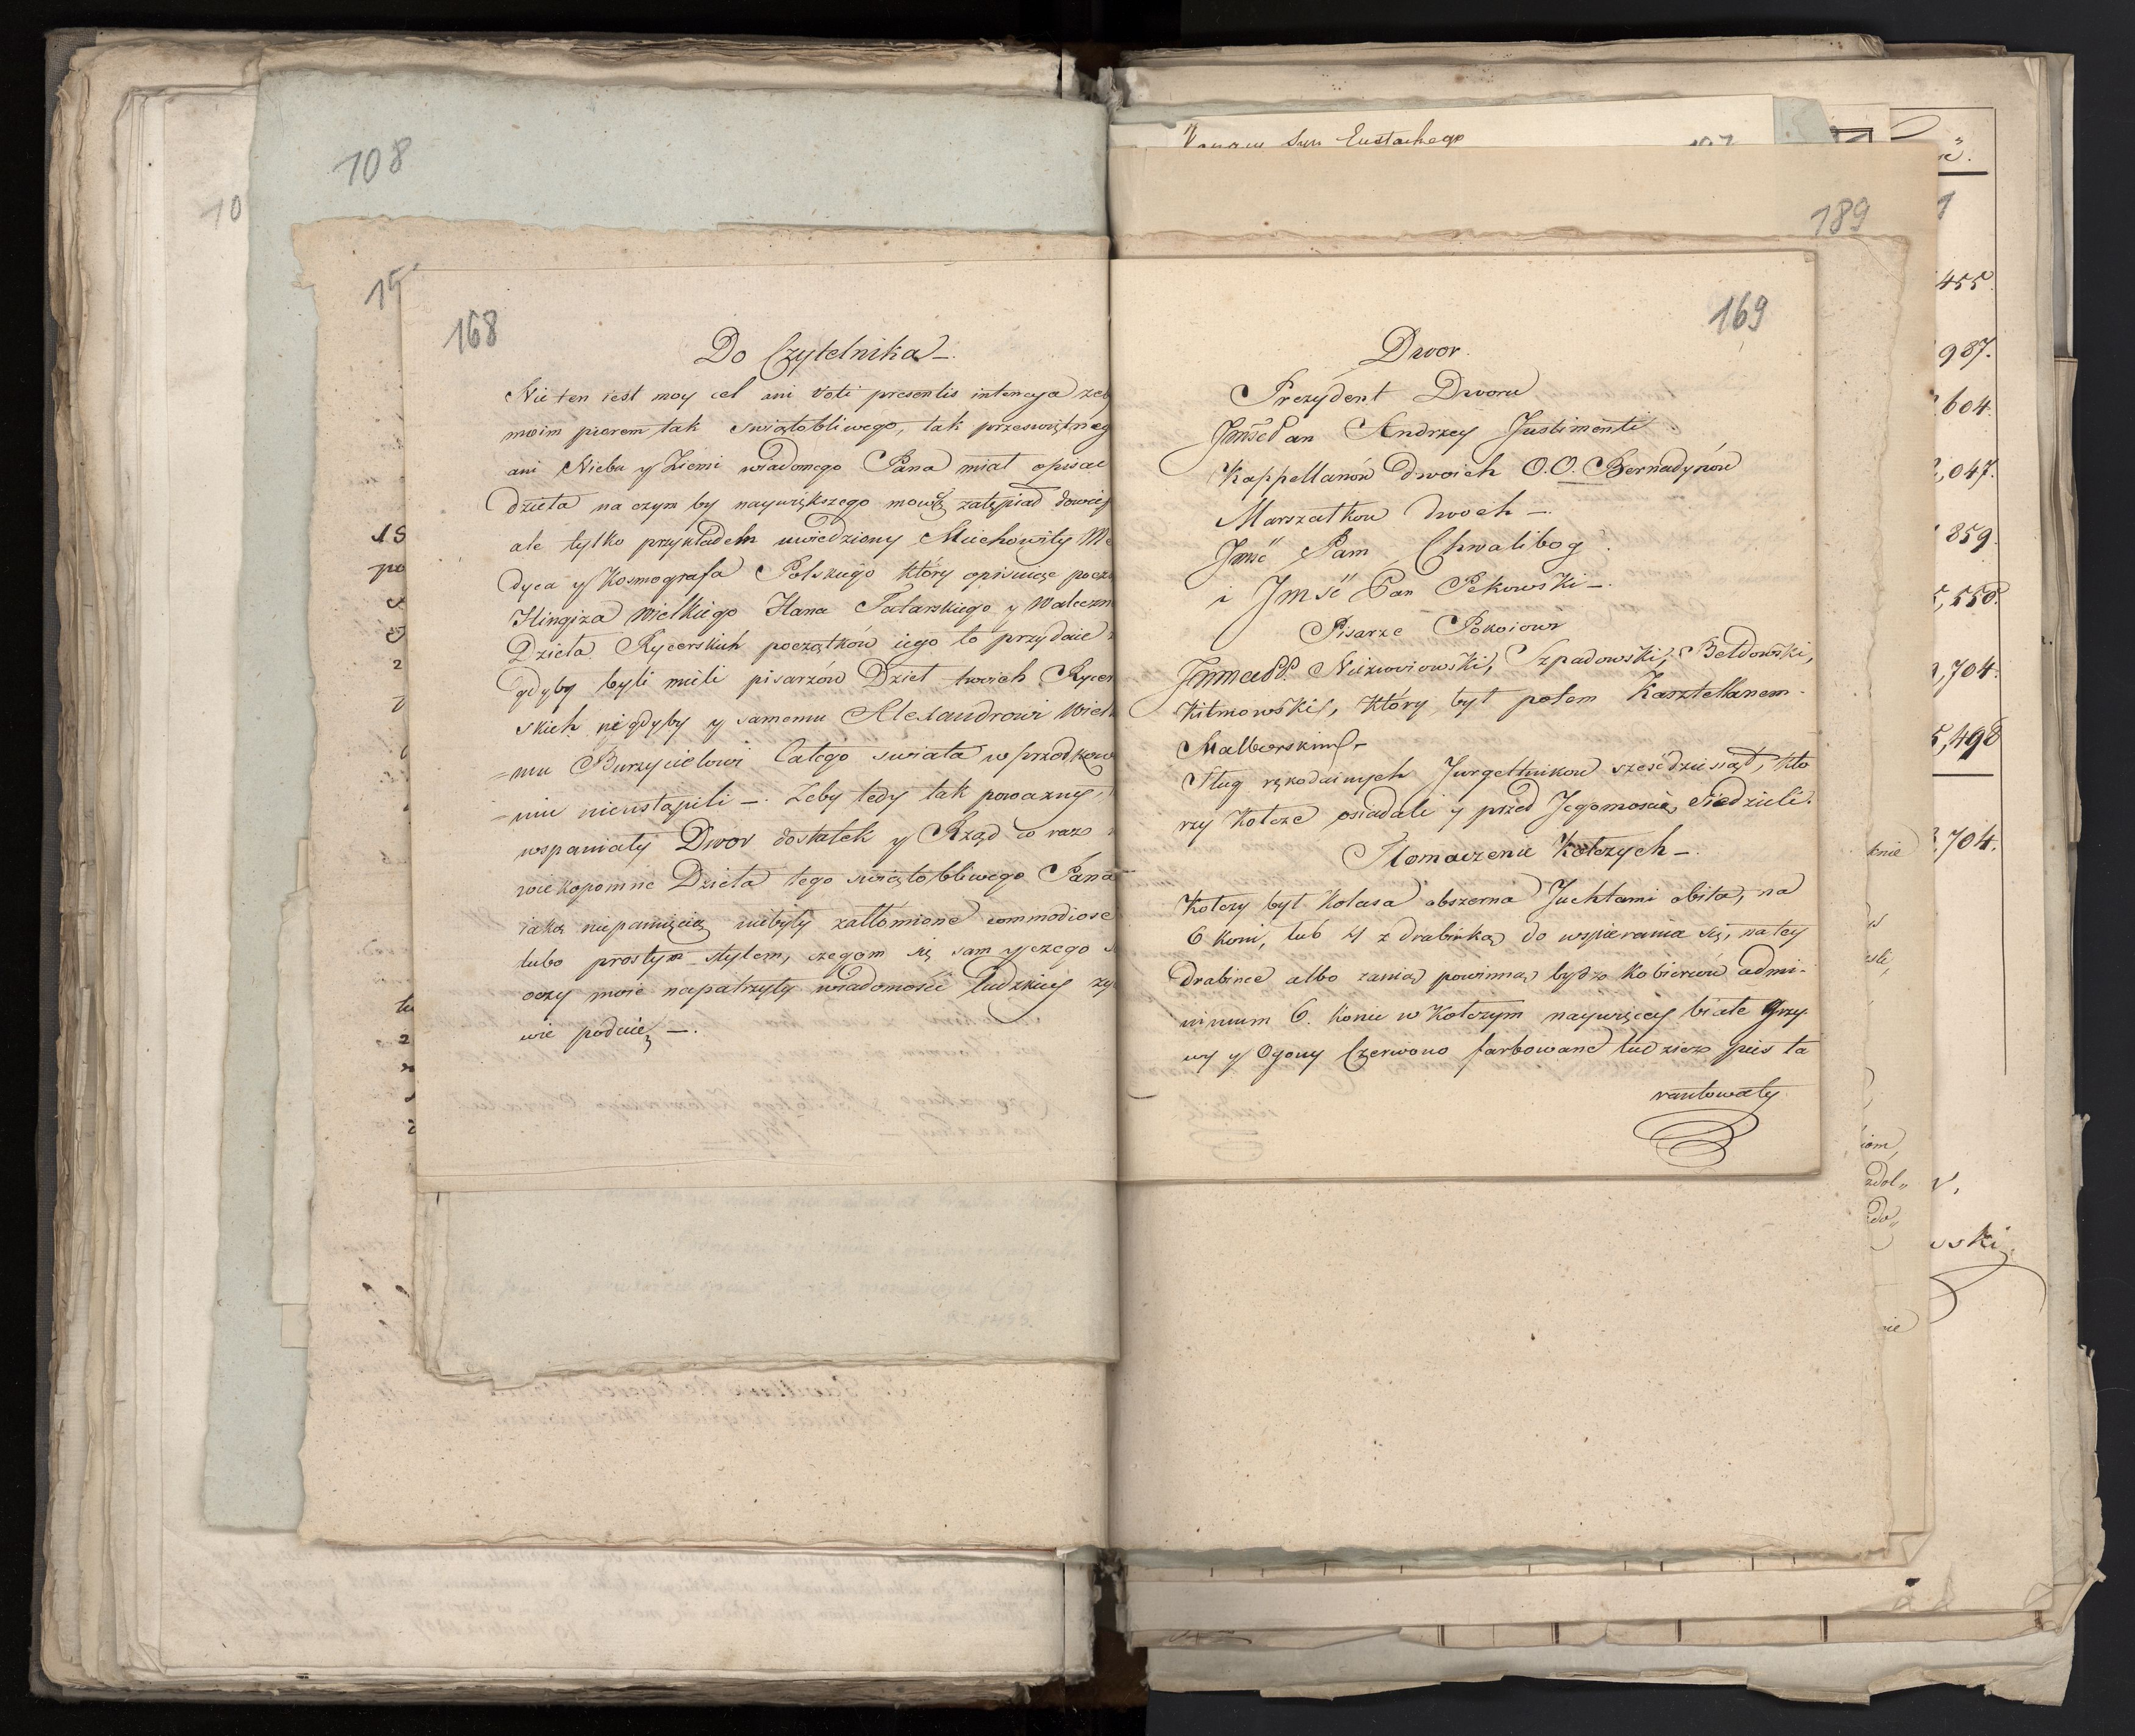 108
10
15
168
Do Czytelnika
Nie ten iest moy cel ani Voti presentis intencya zeby
moim piorem tak swiątobliwego, tak przeswiętneg
ani Niebu y Ziemi wiadomego Pana miał opisac
dzieła na czym by naywiększego mowcy zatępiał dowcip
ale tylko przykładem uwiedziony Miechowity Me
dyca y Kosmografa Polskiego który opisuiąc począ
Hingiza Wielkiego Hana Tatarskiego y Waleczn
Dzieła Rycerskich początków iego to przydaie
gdyby byli mieli pisarzów Dzieł swoich Rycer
skich nigdyby y samemu Alexandrowi Wiel
=mu Burzycielowi Całego swiata w przodkowa
=niu nieustąpili —. Zeby tedy tak powazny,
wspaniały Dwor dostatek y Rząd co raz
wiekopomne Dzieła tego swiątobliwego Pana
iaką niepamięcią niebyły zatłomione commodiose
lubo prostym stylem, czegom się sam y czego
oczy moie napatrzyły wiadomości ludzkiey zy
wie podaię —.
Eustachego
189
169
Dwor.
Prezydent Dworu
Jmść Pan Andrzey Justimenti
Kappellanów dwoich O.O. Bernadynów
Marszałkow dwoch —.
Jmść Pam Chwalibog
i Jmść Pan Pękowski —.
Pisarze Pokoiowi
JmmciPP. Niezwoiowski, Szpadowski, Bełdowski,
Kitnowski, który był potem Kasztellanem
Malborskim —
Sług rękodainych Jurgeltnikow szescdziesiąt, kto
rzy Kotcze osiadali y przed Jegomoscią siedzieli.
Tłomaczenie Kotczych —.
Kotczy był Kolasa obszerna Juchtami obita, na
6 koni, lub 4 z drabinką do wspierania się, na tey
drabince albo zanią powinną bydz Kobierców admi-
nimum 6. Konie w Kotczym naywięcey białe grzy
wy y Ogony Czerwono farbowane tudziesz pies ta
rantowaty
455.
987.
604.
,047.
859.
,550.
,704.
,498
,704.